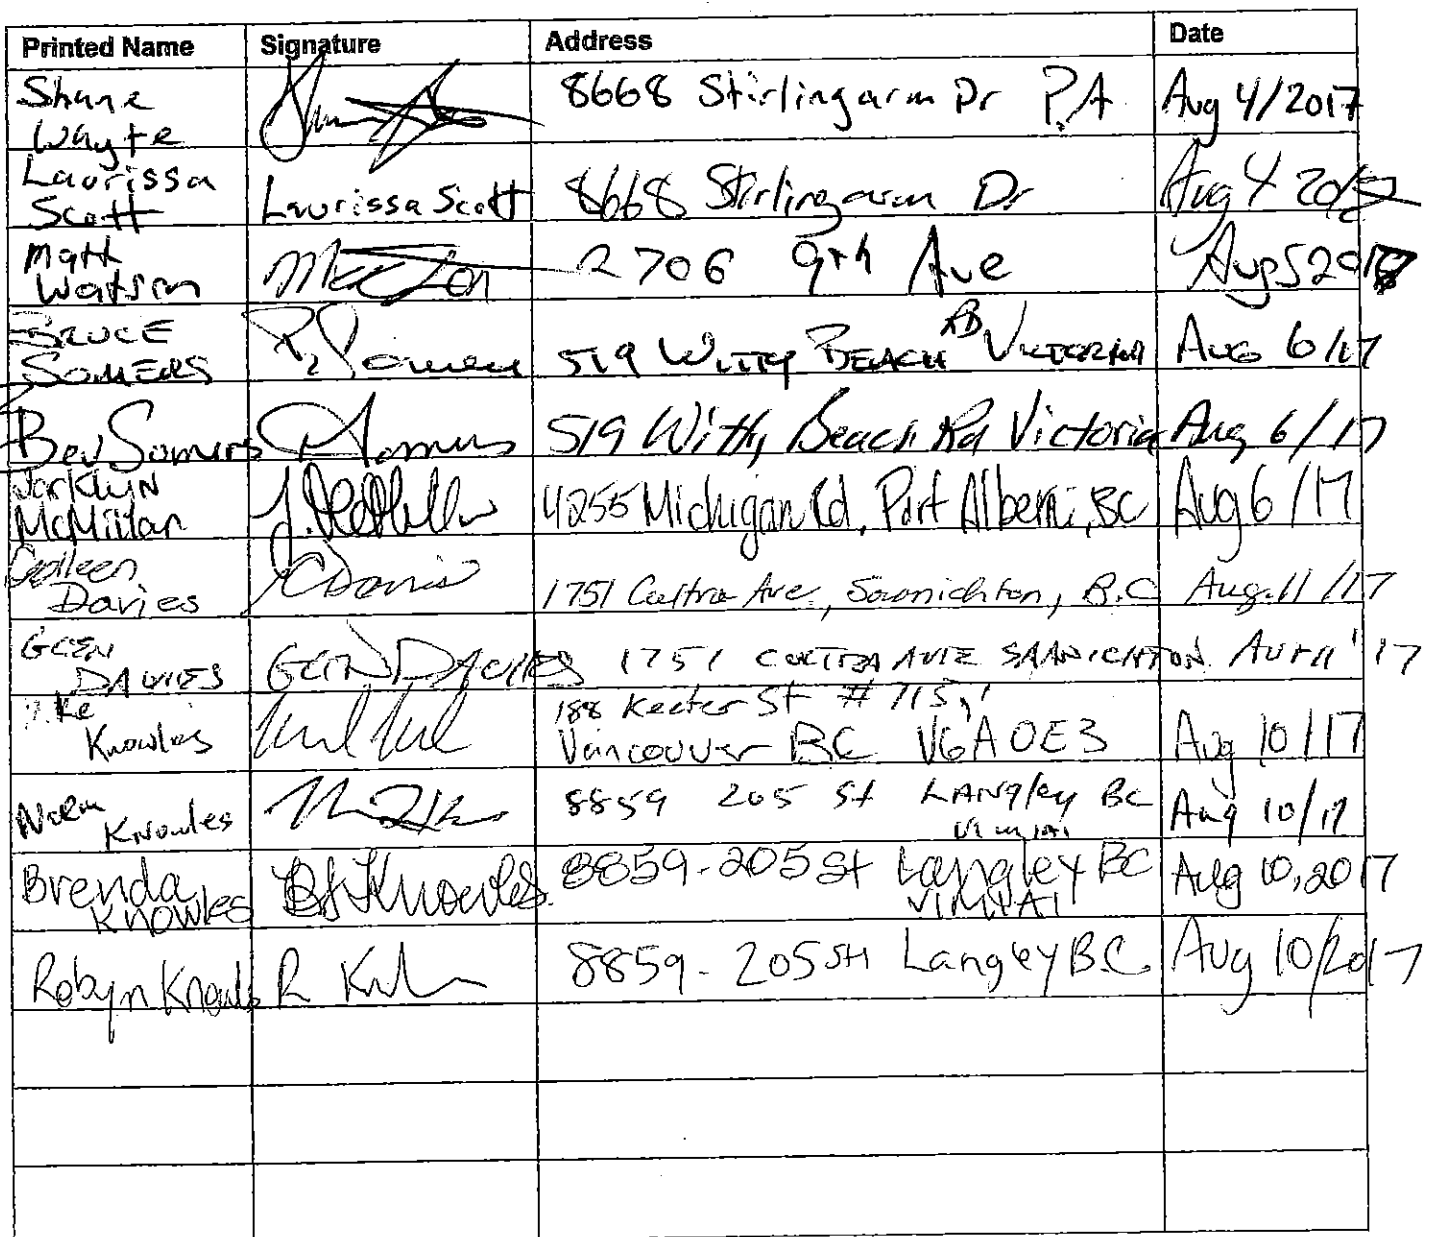 Printed Name Signature Address Date
Shane Whyte 8668 Stirlingarm Dr P.A Aug 4/2017
Laurissa Scott Laurissa Scott 8668 Stirlingarm Dr Aug 4 2017
Matt Watson 2706 9th Ave Aug 5 2017
BRUCE SOMERS 519 WITTY BEACH RD VICTORIA Aug 6/17
Bev Somers 519 Witty Beach Rd Victoria Aug 6/17
Jacklyn McMillan 4255 Michigan Rd, Port Alberni, BC Aug 6/17
Colleen Davies C Davies 1751 Cultra Ave, Saanichton, B.C Aug. 11/17
GLEN DAVIES GLEN DAVIES 1751 CULTRA AVE SAANICHTON. AUG 11 '17
Mike Knowles 188 Keefer St # 715,
Vancouver BC V6A 0E3 Aug 10/17
Norm Knowles 8859 205 St Langley BC
V1M 1A1 Aug 10/17
Brenda Knowles BJ Knowles. 8859-205 St Langley BC
V1M 1A1 Aug 10, 2017
Robyn Knowles 8859-205 St Langley B.C. Aug 10/2017